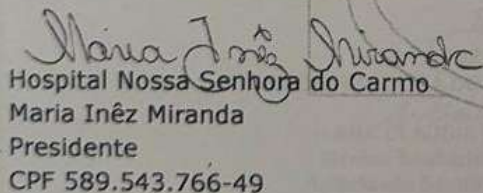 Maria Inêz Miranda
Hospital Nossa Senhora do Carmo
Maria Inêz Miranda
Presidente
CPF 589.543.766-49